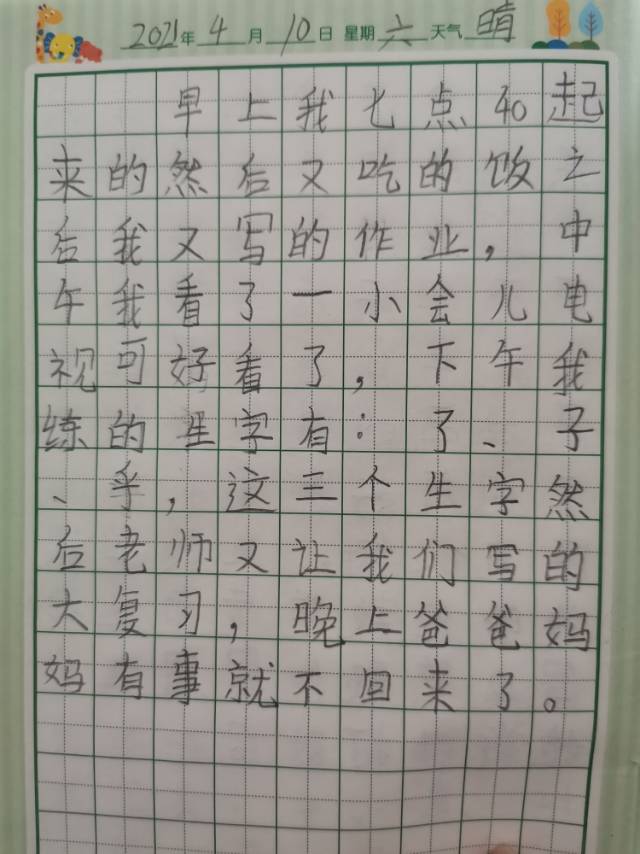 2021年4月10日 星期六 天气晴
早上我七点40起
来的然后又吃的饭之
后我又写的作业,中
午我看了一小会儿电
视可好看了,下午我
练的生字有:了、子
、乎,这三个生字然
后老师又让我们写的
大复习,晚上爸爸妈
妈有事就不回来了。